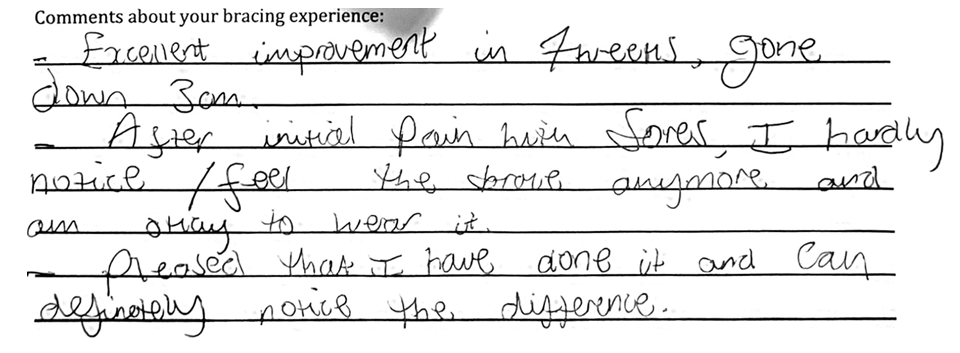 Comments about your bracing experience:
- Excellent improvement in 7 weeks, gone
down 3cm.
- After initial pain with sores, I hardly
notice / feel the brace anymore and
am okay to wear it.
- Pleased that I have done it and can
definetely notice the difference.